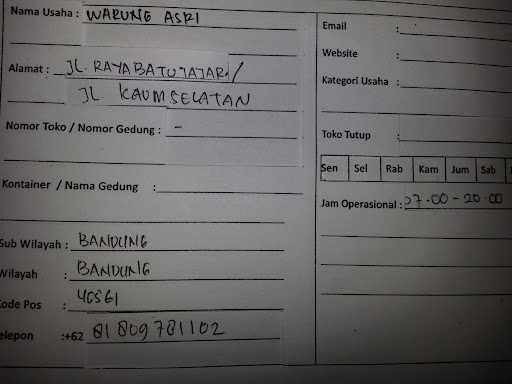 Nama Usaha : WARUNG ASRI
Alamat : JL. RAYA BATUJAJAR /
JL KAUM SELATAN
Nomor Toko / Nomor Gedung : -
Kontainer / Nama Gedung :
Sub Wilayah : BANDUNG
Wilayah : BANDUNG
Kode Pos : 40561
Telepon :+62 81809781102
Email :
Website :
Kategori Usaha :
Toko Tutup :
Sen Sel Rab Kam Jum Sab
Jam Operasional : 07.00 - 20.00